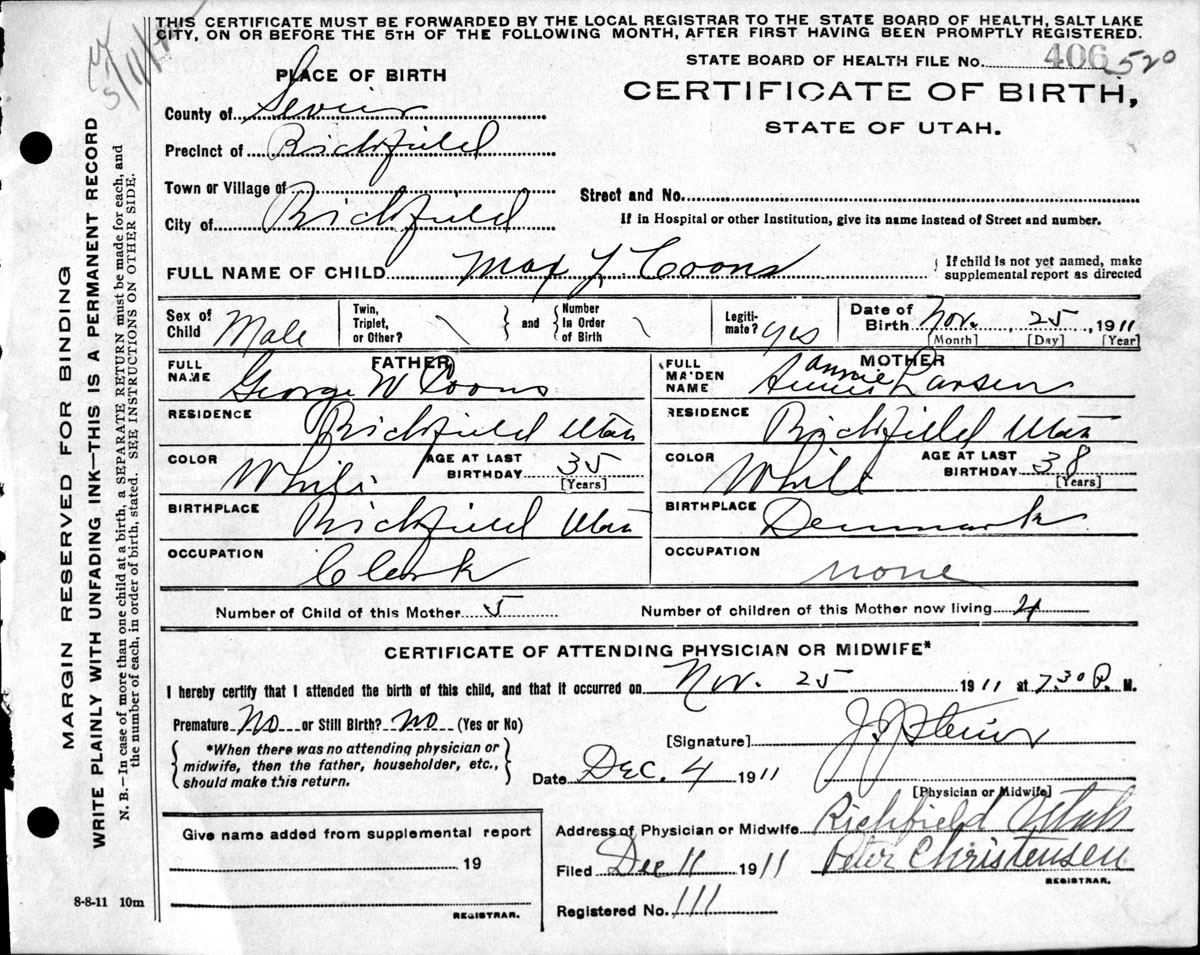 THIS CERTIFICATE MUST BE FORWARDED BY THE LOCAL REGISTRAR TO THE STATE BOARD OF HEALTH, SALT LAKE
CITY, ON OR BEFORE THE 5TH OF THE FOLLOWING MONTH, AFTER FIRST HAVING BEEN PROMPTLY REGISTERED.
STATE BOARD OF HEALTH FILE No. 406 520
PLACE OF BIRTH
CERTIFICATE OF BIRTH,
STATE OF UTAH.
County of Sevier
Precinct of Richfield
Town or Village of
Street and No.
City of Richfield
If in Hospital or other Institution, give its name instead of Street and number.
FULL NAME OF CHILD Max L Coons
If child is not yet named, make
supplemental report as directed
Sex of Child Male
Twin, Triplet, or Other? \
and Number In Order of Birth \
Legiti-mate? yes
Date of Birth Nov. 25, 1911
[Month] [Day] [Year]
FATHER
FULL NAME George W Coons
RESIDENCE Richfield Utah
COLOR White
AGE AT LAST BIRTHDAY 35
[Years]
BIRTHPLACE Richfield Utah
OCCUPATION Clerk
MOTHER
FULL MAIDEN NAME Annie Larsen
RESIDENCE Richfield Utah
COLOR White
AGE AT LAST BIRTHDAY 38
[Years]
BIRTHPLACE Denmark
OCCUPATION none
Number of Child of this Mother 5 Number of children of this Mother now living 4
CERTIFICATE OF ATTENDING PHYSICIAN OR MIDWIFE*
I hereby certify that I attended the birth of this child, and that it occurred on Nov. 25 1911 at 7.30 P. M.
Premature No or Still Birth? No (Yes or No)
*When there was no attending physician or
midwife, then the father, householder, etc.,
should make this return.
[Signature] J. J. Steiner
Date Dec. 4 1911
[Physician or Midwife]
Give name added from supplemental report
19
REGISTRAR.
Address of Physician or Midwife Richfield Utah
Filed Dec 11 1911 Peter Christensen
REGISTRAR.
Registered No. 111
8-8-11 10m
MARGIN RESERVED FOR BINDING
WRITE PLAINLY WITH UNFADING INK—THIS IS A PERMANENT RECORD
N. B.—In case of more than one child at a birth, a SEPARATE RETURN must be made for each, and
the number of each, in order of birth, stated. SEE INSTRUCTIONS ON OTHER SIDE.